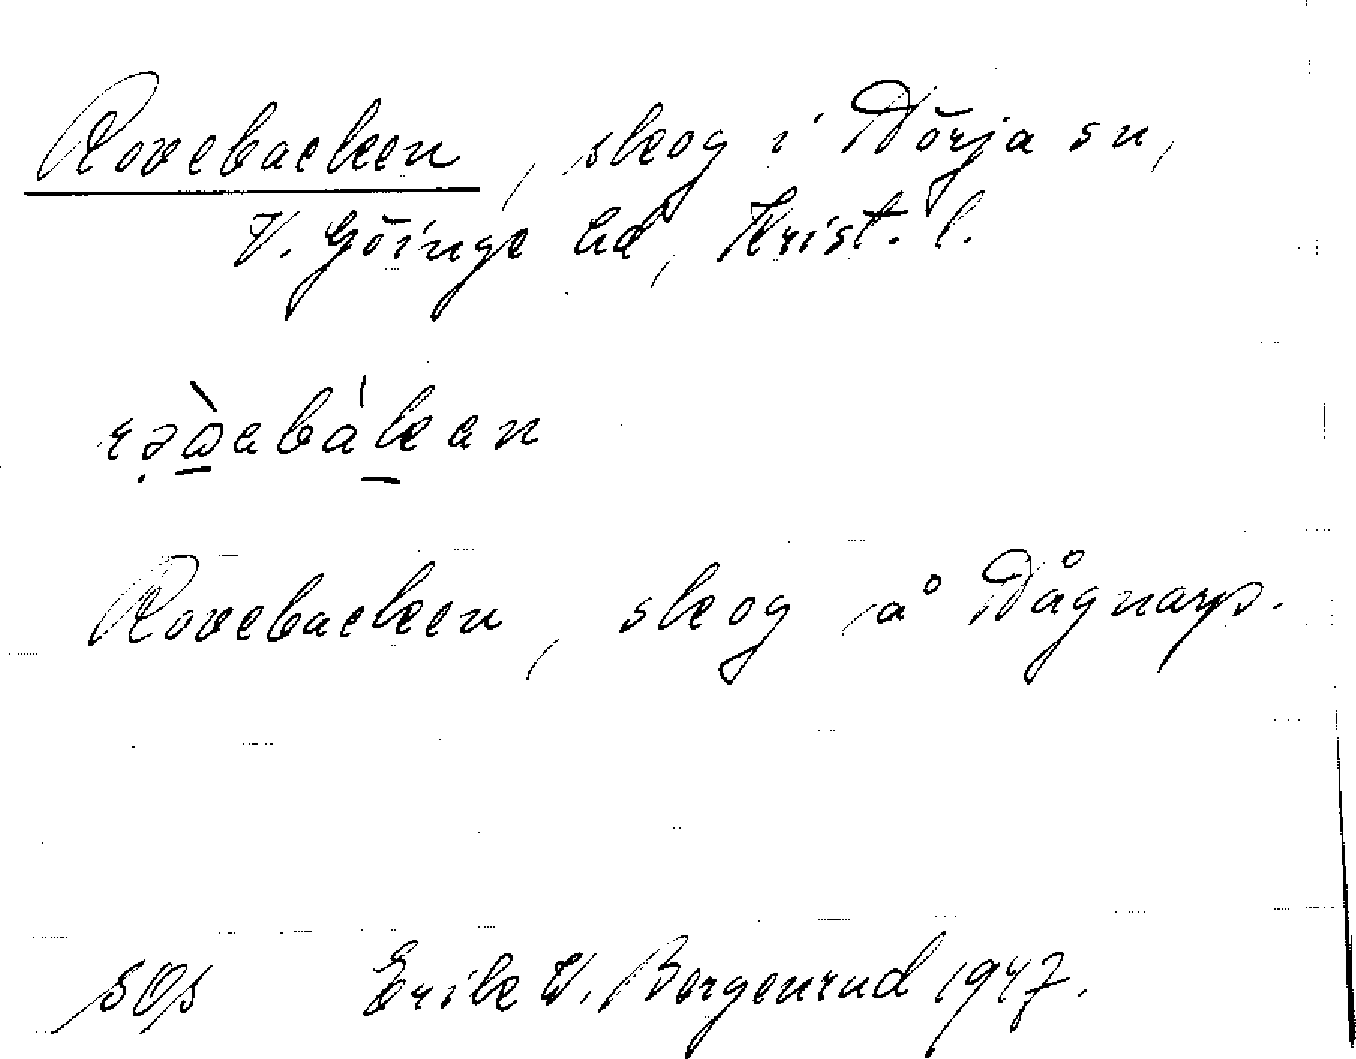 Rovebacken, skog i Nörja sn,
V. Göinge hd, Krist. l.
Rovebacken, skog å Vågnarp.
SOS Erik W. Borgenrud 1947.